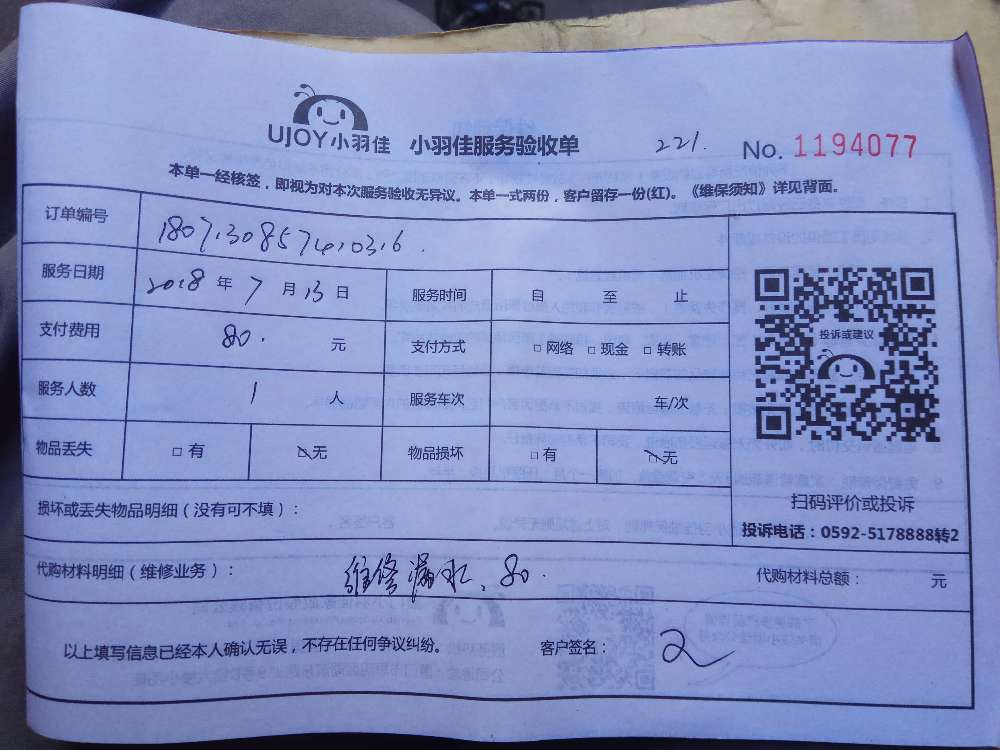 UJOY小羽佳 小羽佳服务验收单 221. No. 1194077
本单一经核签，即视为对本次服务验收无异议。本单一式两份，客户留存一份(红)。《维保须知》详见背面。
订单编号 180713085741.0316.
服务日期 2018 年 7 月 13 日 服务时间 自 至 止
支付费用 80. 元 支付方式 □ 网络 □ 现金 □ 转账
投诉或建议
服务人数 1 人 服务车次 车/次
物品丢失 □ 有 □ 无 物品损坏 □ 有 □ 无
扫码评价或投诉
损坏或丢失物品明细（没有可不填）：
投诉电话：0592-5178888转2
代购材料明细（维修业务）： 维修漏水. 80. 代购材料总额： 元
以上填写信息已经本人确认无误，不存在任何争议纠纷。 客户签名：